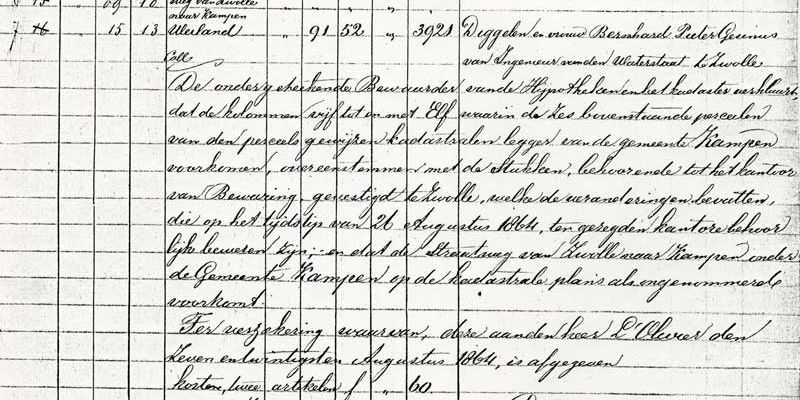 weg van Zwolle
15 " " 09 10 naar Kampen " " " "
7 16 15 13 Weiland " 91 52 " 3921 Diggelen en vrouw Bernhard Pieter Gesinus
van Ingenieur van den Waterstaat te Zwolle
Coll
De ondergeteekende Bewaarder van de Hypotheken en het kadaster verklaart,
dat de kolommen vijf tot en met Elf waarin de Zes bovenstaande perceelen
van den perceels gewijzen kadastralen legger van de gemeente Kampen
voorkomen, overeenstemmen met de Stukken, behoorende tot het kantoor
van Bewaring, gevestigd te Zwolle, welke de veranderingen bevatten,
die op het tijdstip van 26 Augustus 1864, ten gezegden kantore behoor
lijk bewezen zijn; en dat de Straatweg van Zwolle naar Kampen onder
de Gemeente Kampen op de kadastrale plans als ongenommerd
voorkomt.
Ter verzekering waarvan, deze aan den heer L'Olivier den
Zeven en twintigsten Augustus 1864, is afgegeven
kosten, twee artikelen f " 60.